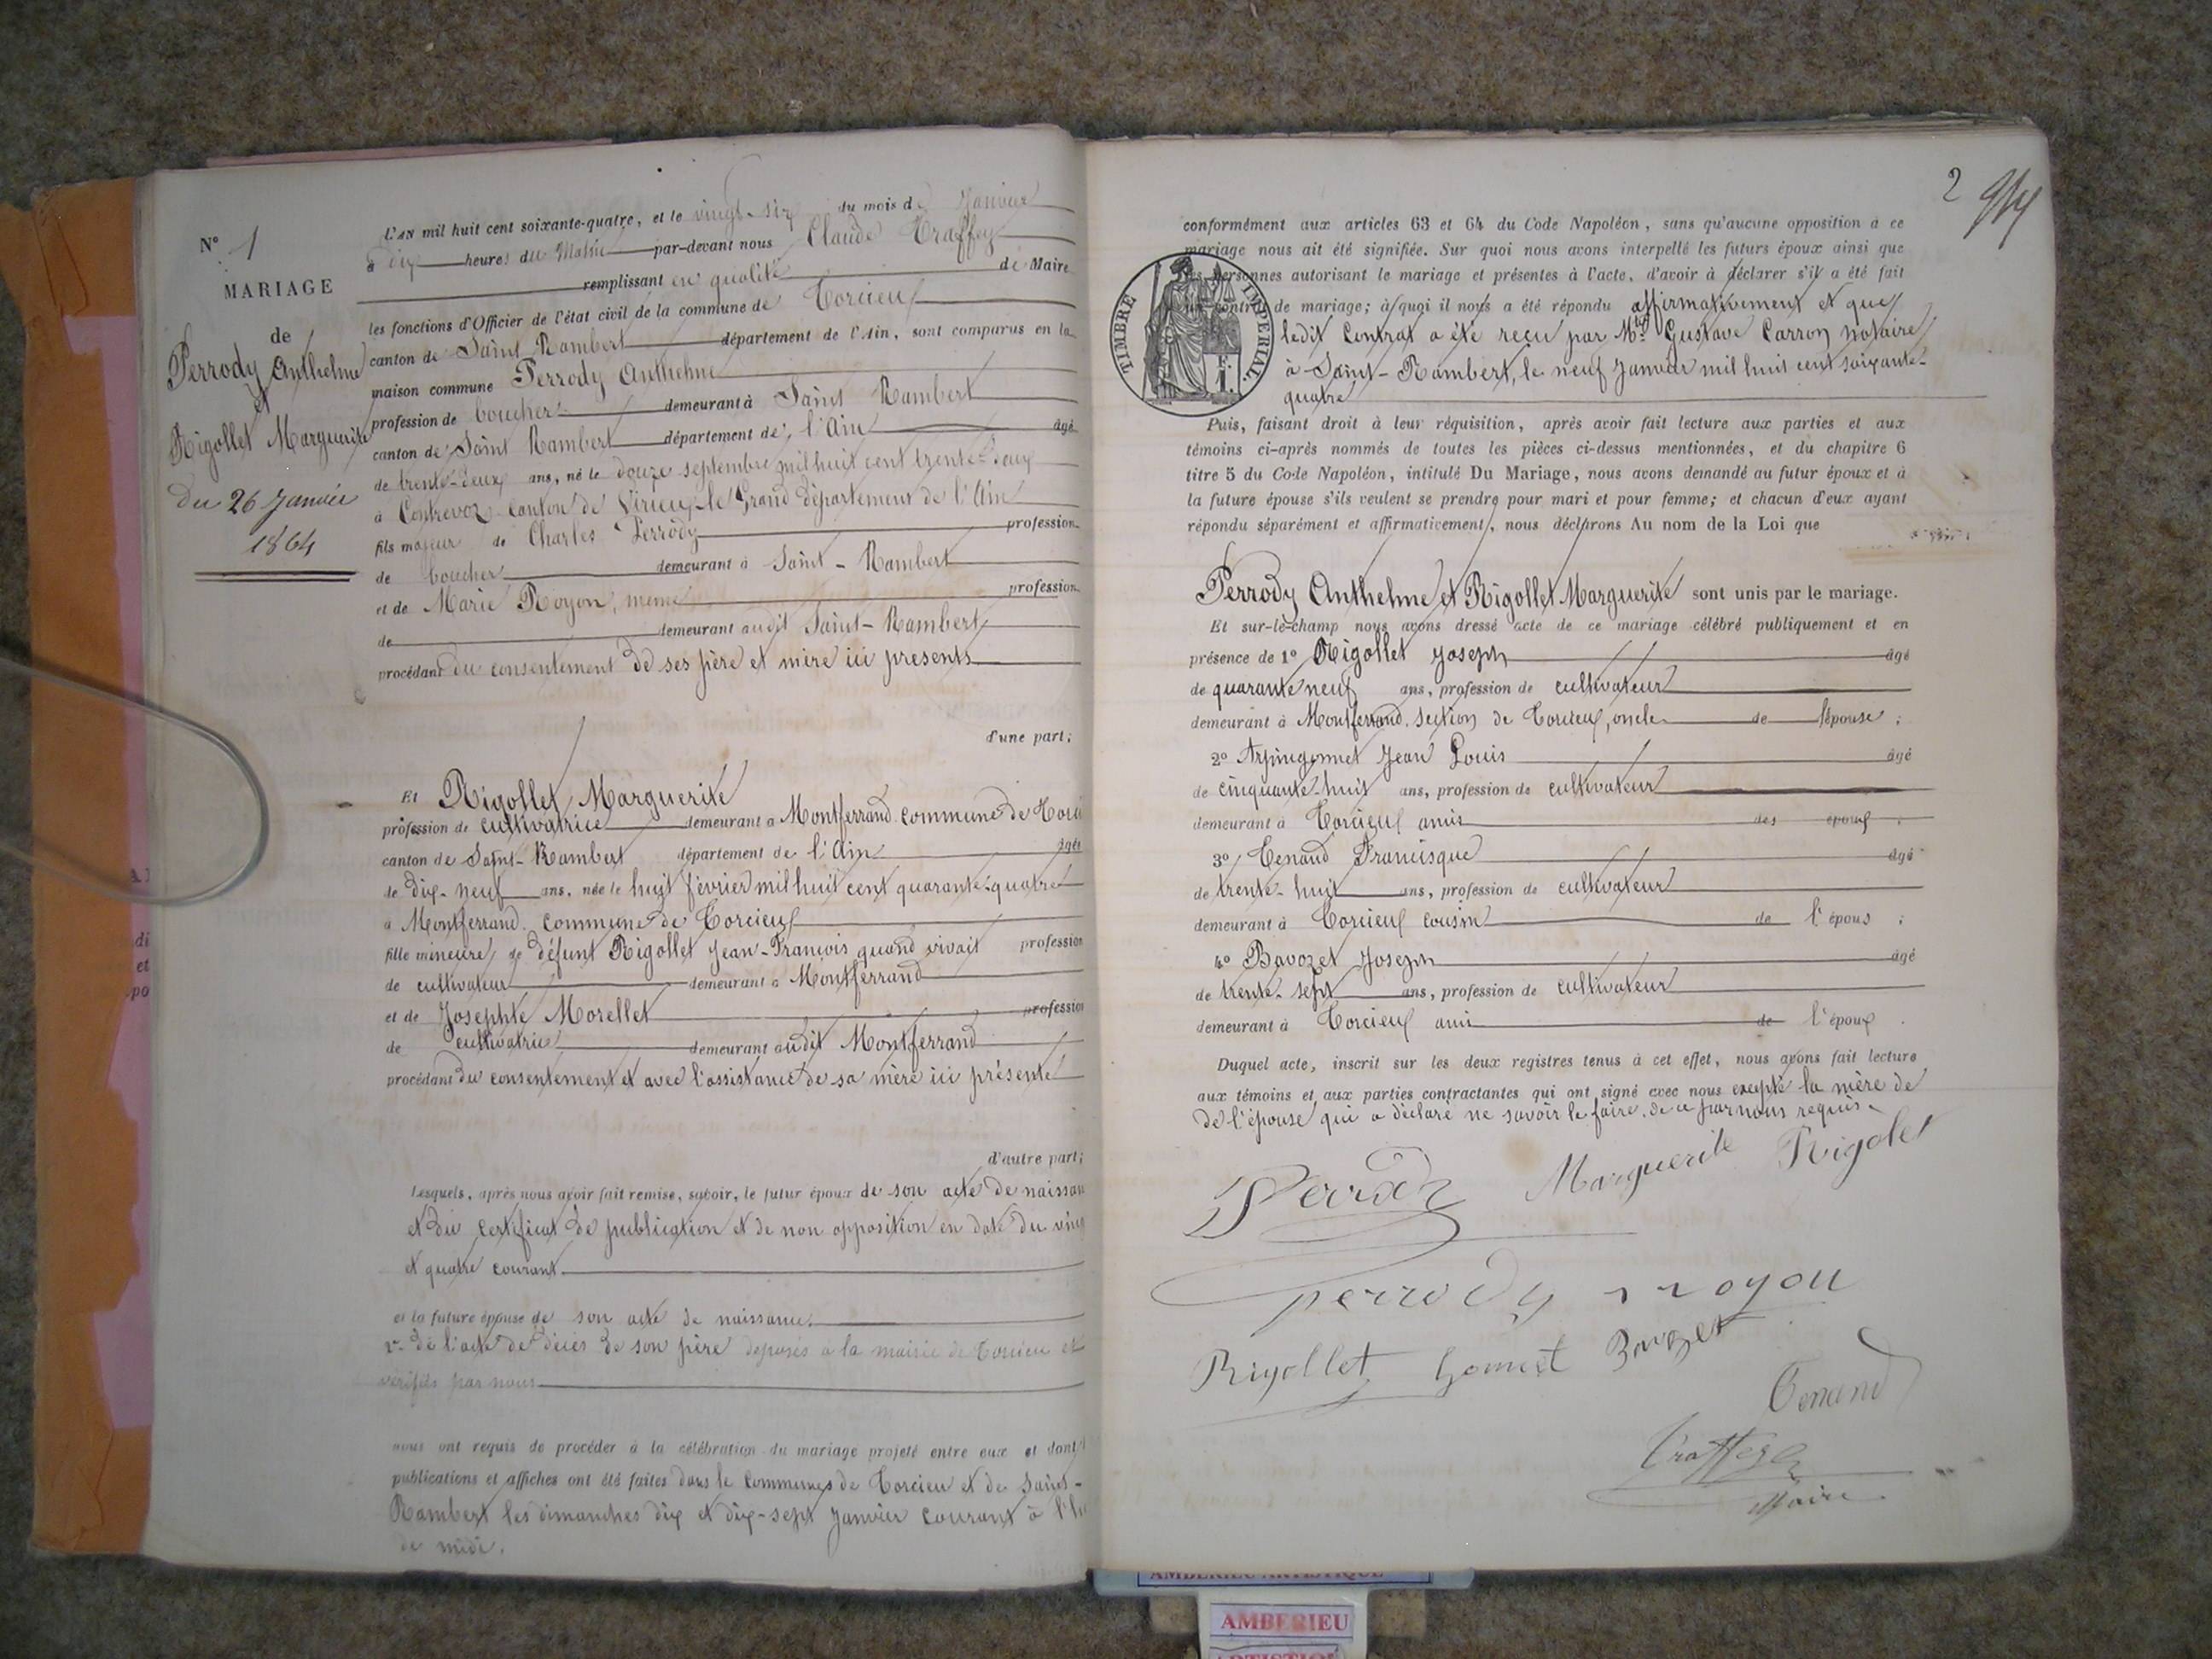 N° 1
MARIAGE
de
Perrody Anthelme
et
Rigollet Marguerite
Du 26 Janvier
1864
L'AN mil huit cent soixante-quatre, et le vingt-six du mois de Janvier
à dix heures du Matin par-devant nous Claude Traffey
remplissant en qualité de Maire
les fonctions d'Officier de l'état civil de la commune de Torcieu
canton de Saint Rambert département de l'Ain, sont comparus en la
maison commune Perrody Anthelme
profession de boucher demeurant à Saint Rambert
canton de Saint Rambert département de l'Ain âgé
de trente-deux ans, né le douze septembre mil huit cent trente-deux
à Contrevoz canton de Virieu-le-Grand département de l'Ain
fils majeur de Charles Perrody profession
de boucher demeurant à Saint-Rambert
et de Marie Royon, même profession
de demeurant audit Saint-Rambert
procédant du consentement de ses père et mère ici présents
d'une part;
Et Rigollet Marguerite
profession de cultivatrice demeurant à Montferrand commune de Torci
canton de Saint-Rambert département de l'Ain âgée
de dix-neuf ans, née le huit février mil huit cent quarante-quatre
à Montferrand commune de Torcieu
fille mineure de défunt Rigollet Jean-François quand vivait profession
de cultivateur demeurant à Montferrand
et de Josephte Morellet profession
de cultivatrice demeurant audit Montferrand
procédant du consentement et avec l'assistance de sa mère ici présente
d'autre part;
Lesquels, après nous avoir fait remise, savoir, le futur époux de son acte de naissan
et du certificat de publication et de non opposition en date du ving
et quatre courant.
et la future épouse de son acte de naissance.
de l'acte de décès de son père déposés à la mairie de Torcieu et
vérifiés par nous
nous ont requis de procéder à la célébration du mariage projeté entre eux et dont
publications et affiches ont été faites dans le communes de Torcieu et de Saint-
Rambert les dimanches dix et dix-sept Janvier courant à l'h
de midi.
2
conformément aux articles 63 et 64 du Code Napoléon, sans qu'aucune opposition à ce
mariage nous ait été signifiée. Sur quoi nous avons interpellé les futurs époux ainsi que
les personnes autorisant le mariage et présentes à l'acte, d'avoir à déclarer s'il a été fait
un contrat de mariage; à quoi il nous a été répondu affirmativement et que
ledit Contrat a été reçu par Mtre Gustave Carron notaire
à Saint-Rambert, le neuf Janvier mil huit cent soixante-
quatre
TIMBRE IMPERIAL
F. 1.
Puis, faisant droit à leur réquisition, après avoir fait lecture aux parties et aux
témoins ci-après nommés de toutes les pièces ci-dessus mentionnées, et du chapitre 6
titre 5 du Code Napoléon, intitulé Du Mariage, nous avons demandé au futur époux et à
la future épouse s'ils veulent se prendre pour mari et pour femme; et chacun d'eux ayant
répondu séparément et affirmativement, nous déclarons Au nom de la Loi que
Perrody Anthelme et Rigollet Marguerite sont unis par le mariage.
Et sur-le-champ nous avons dressé acte de ce mariage célébré publiquement et en
présence de 1° Rigollet Joseph âgé
de quarante neuf ans, profession de cultivateur
demeurant à Montferrand section de Torcieu, oncle de l'épouse;
2° Jean Louis âgé
de cinquante-huit ans, profession de cultivateur
demeurant à Torcieu amis des époux;
3° Tenand Francisque âgé
de trente-huit ans, profession de cultivateur
demeurant à Torcieu cousin de l'épous;
4° Bavozet Joseph âgé
de trente-sept ans, profession de cultivateur
demeurant à Torcieu ami de l'époux.
Duquel acte, inscrit sur les deux registres tenus à cet effet, nous avons fait lecture
aux témoins et aux parties contractantes qui ont signé avec nous excepté la mère de
de l'épouse qui a déclaré ne savoir le faire, de ce par nous requis.
Perrody Marguerite Rigolet
perrody royon
Rigollet Gomet Bavozet
Tenand
Traffey
Maire
AMBERIEU ARTISTIQUE
AMBERIEU
ARTISTIQ